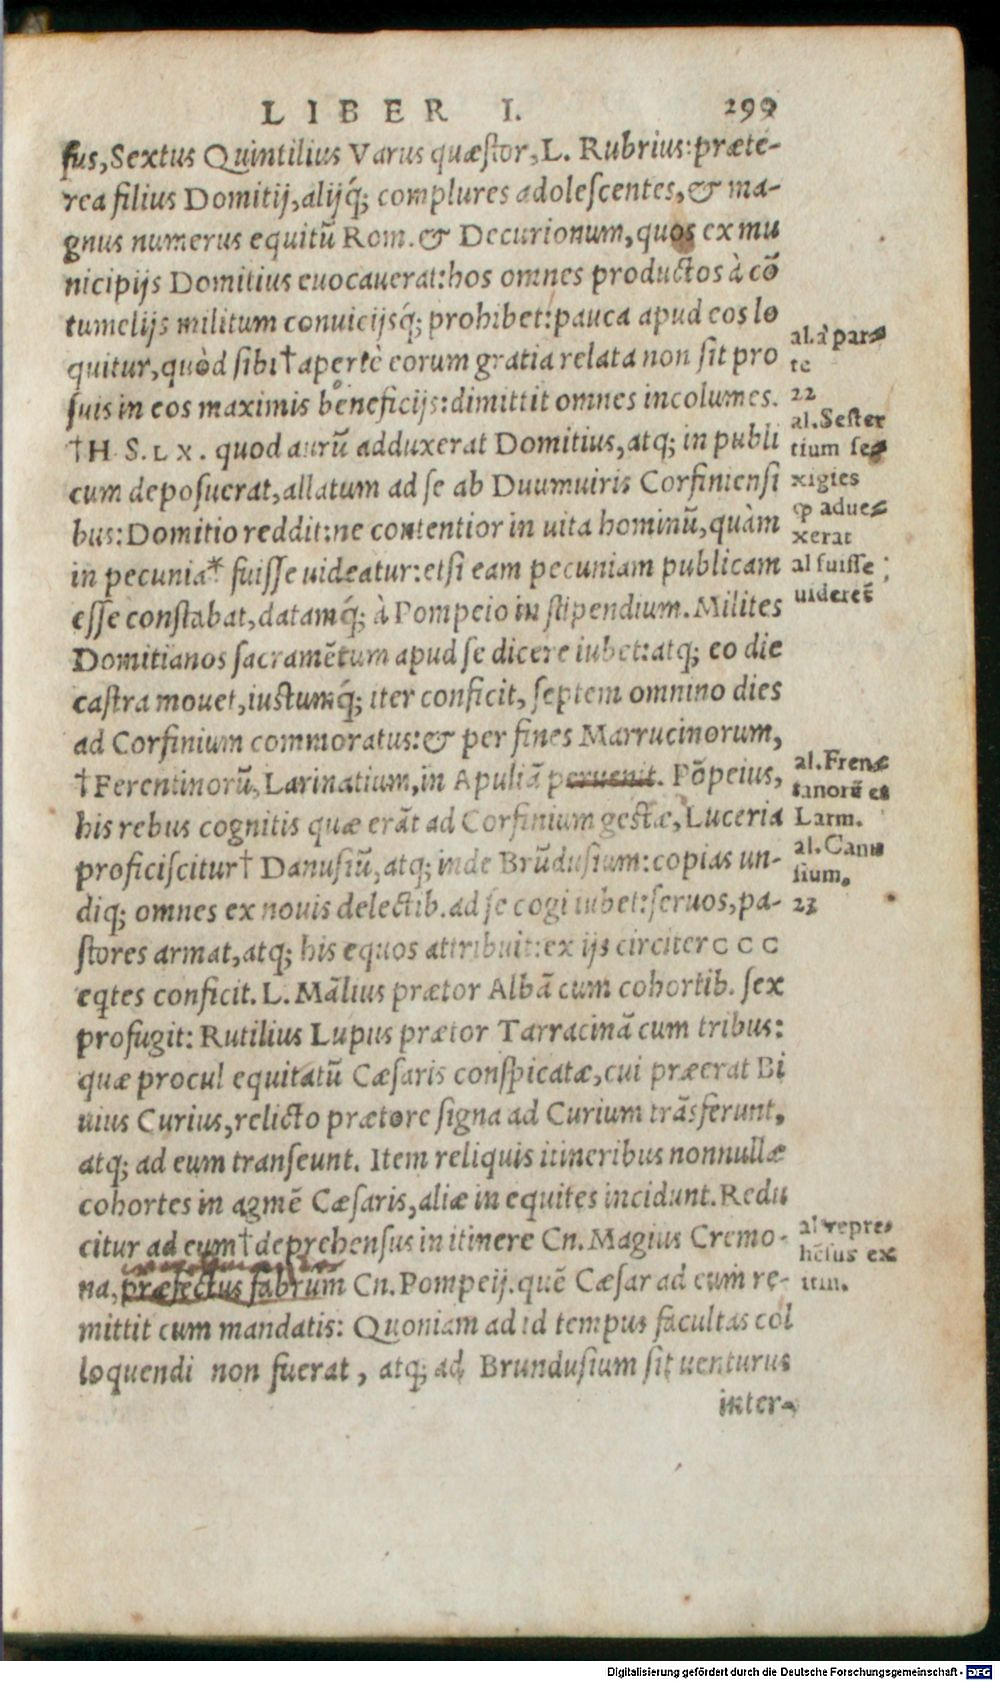 LIBER I. 299
sus, Sextus Quintilius Varus quæstor, L. Rubrius: præte-
rea filius Domitij, alijq́; complures adolescentes, & ma-
gnus numerus equitũ Rom. & Decurionum, quos ex mu
nicipijs Domitius euocauerat: hos omnes productos à cõ
tumelijs militum conuicijsq́; prohibet: pauca apud eos lo
quitur, quòd sibi † apertè eorum gratia relata non sit pro
suis in eos maximis beneficijs: dimittit omnes incolumes.
† H S. LX. quod aurũ adduxerat Domitius, atq; in publi
cum deposuerat, allatum ad se ab Duumuiris Corfiniensi
bus: Domitio reddit: ne contentior in uita hominũ, quàm
in pecunia * fuisse uideatur: etsi eam pecuniam publicam
esse constabat, datamq́; à Pompeio in stipendium. Milites
Domitianos sacramẽtum apud se dicere iubet: atq; eo die
castra mouet, iustumq́; iter conficit, septem omnino dies
ad Corfinium commoratus: & per fines Marrucinorum,
† Ferentinorũ, Larinatium, in Apuliã peruenit. Põpeius,
his rebus cognitis quæ erãt ad Corfinium gestæ, Luceria
proficiscitur † Danusiũ, atq; inde Brũdusium: copias un-
diq; omnes ex nouis delectib. ad se cogi iubet: seruos, pa-
stores armat, atq; his equos attribuit: ex ijs circiter CCC
eqtes conficit. L. Mãlius prætor Albã cum cohortib. sex
profugit: Rutilius Lupus prætor Tarracinã cum tribus:
quæ procul equitatũ Cæsaris conspicatæ, cui præerat Bi
uius Curius, relicto prætore signa ad Curium trãsferunt,
atq; ad eum transeunt. Item reliquis itineribus nonnullæ
cohortes in agmẽ Cæsaris, aliæ in equites incidunt. Redu
citur ad eum † deprehensus in itinere Cn. Magius Cremo-
na, præfectus fabrum Cn. Pompeij. quẽ Cæsar ad eum re-
mittit cum mandatis: Quoniam ad id tempus facultas col
loquendi non fuerat, atq; ad Brundusium sit uenturus
inter-
al. à par-
te
22
al. Sester
tium se-
xigies
qp adue-
xerat
al fuisse
uideret̃
al. Fren-
tanorũ et
Larm.
al. Canu
sium.
23
al repre-
hẽsus ex
itin.
Digitalisierung gefördert durch die Deutsche Forschungsgemeinschaft - DFG